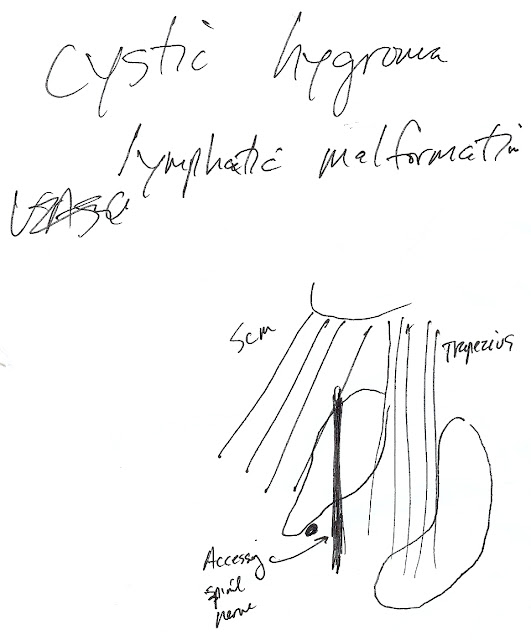 cystic hygroma
lymphatic malformatin
SCM
Trapezius
Accessory
spinal
nerve